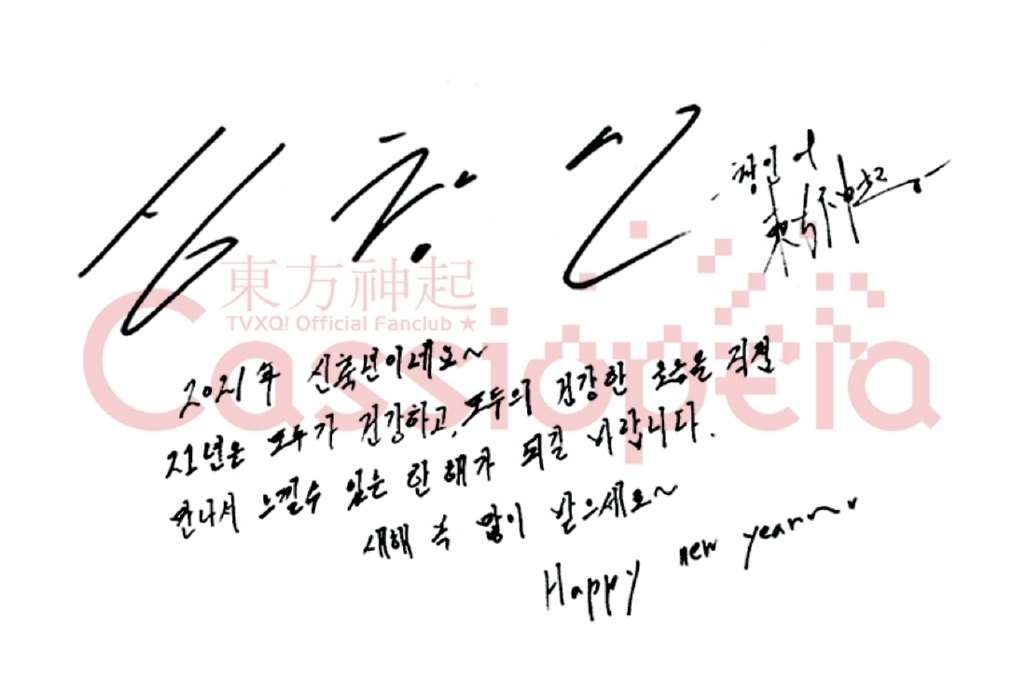 심창민
창민 of
東方神起
東方神起
TVXQ! Official Fanclub ★
Cassiopeia
2021年 신축년이네요~
21년은 모두가 건강하고, 모두의 건강한 모습을 직접
만나서 느낄수 있는 한 해가 되길 바랍니다.
새해 복 많이 받으세요~
Happy new year~